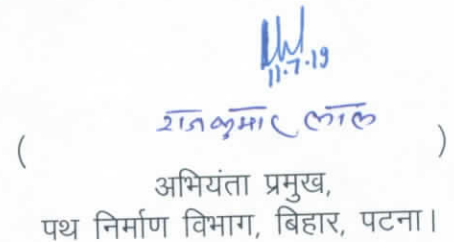 11.7.19
( राजकुमार लाल )
अभियंता प्रमुख,
पथ निर्माण विभाग, बिहार, पटना।